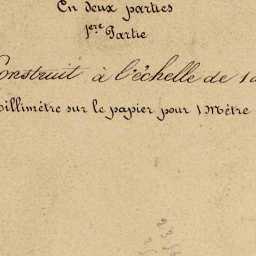 En deux parties
1ère Partie
Construit à l'échelle de 1
Millimètre sur le papier pour 1 Mètre